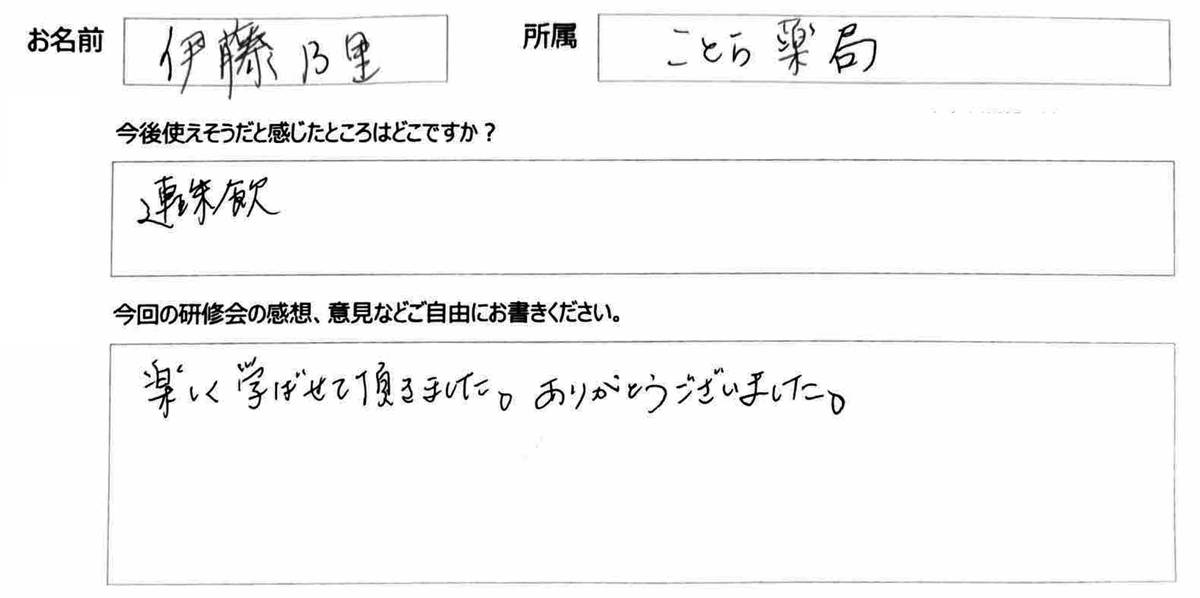 お名前 伊藤乃里 所属 ことら薬局
今後使えそうだと感じたところはどこですか？
連珠飲
今回の研修会の感想、意見などご自由にお書きください。
楽しく学ばせて頂きました。ありがとうございました。